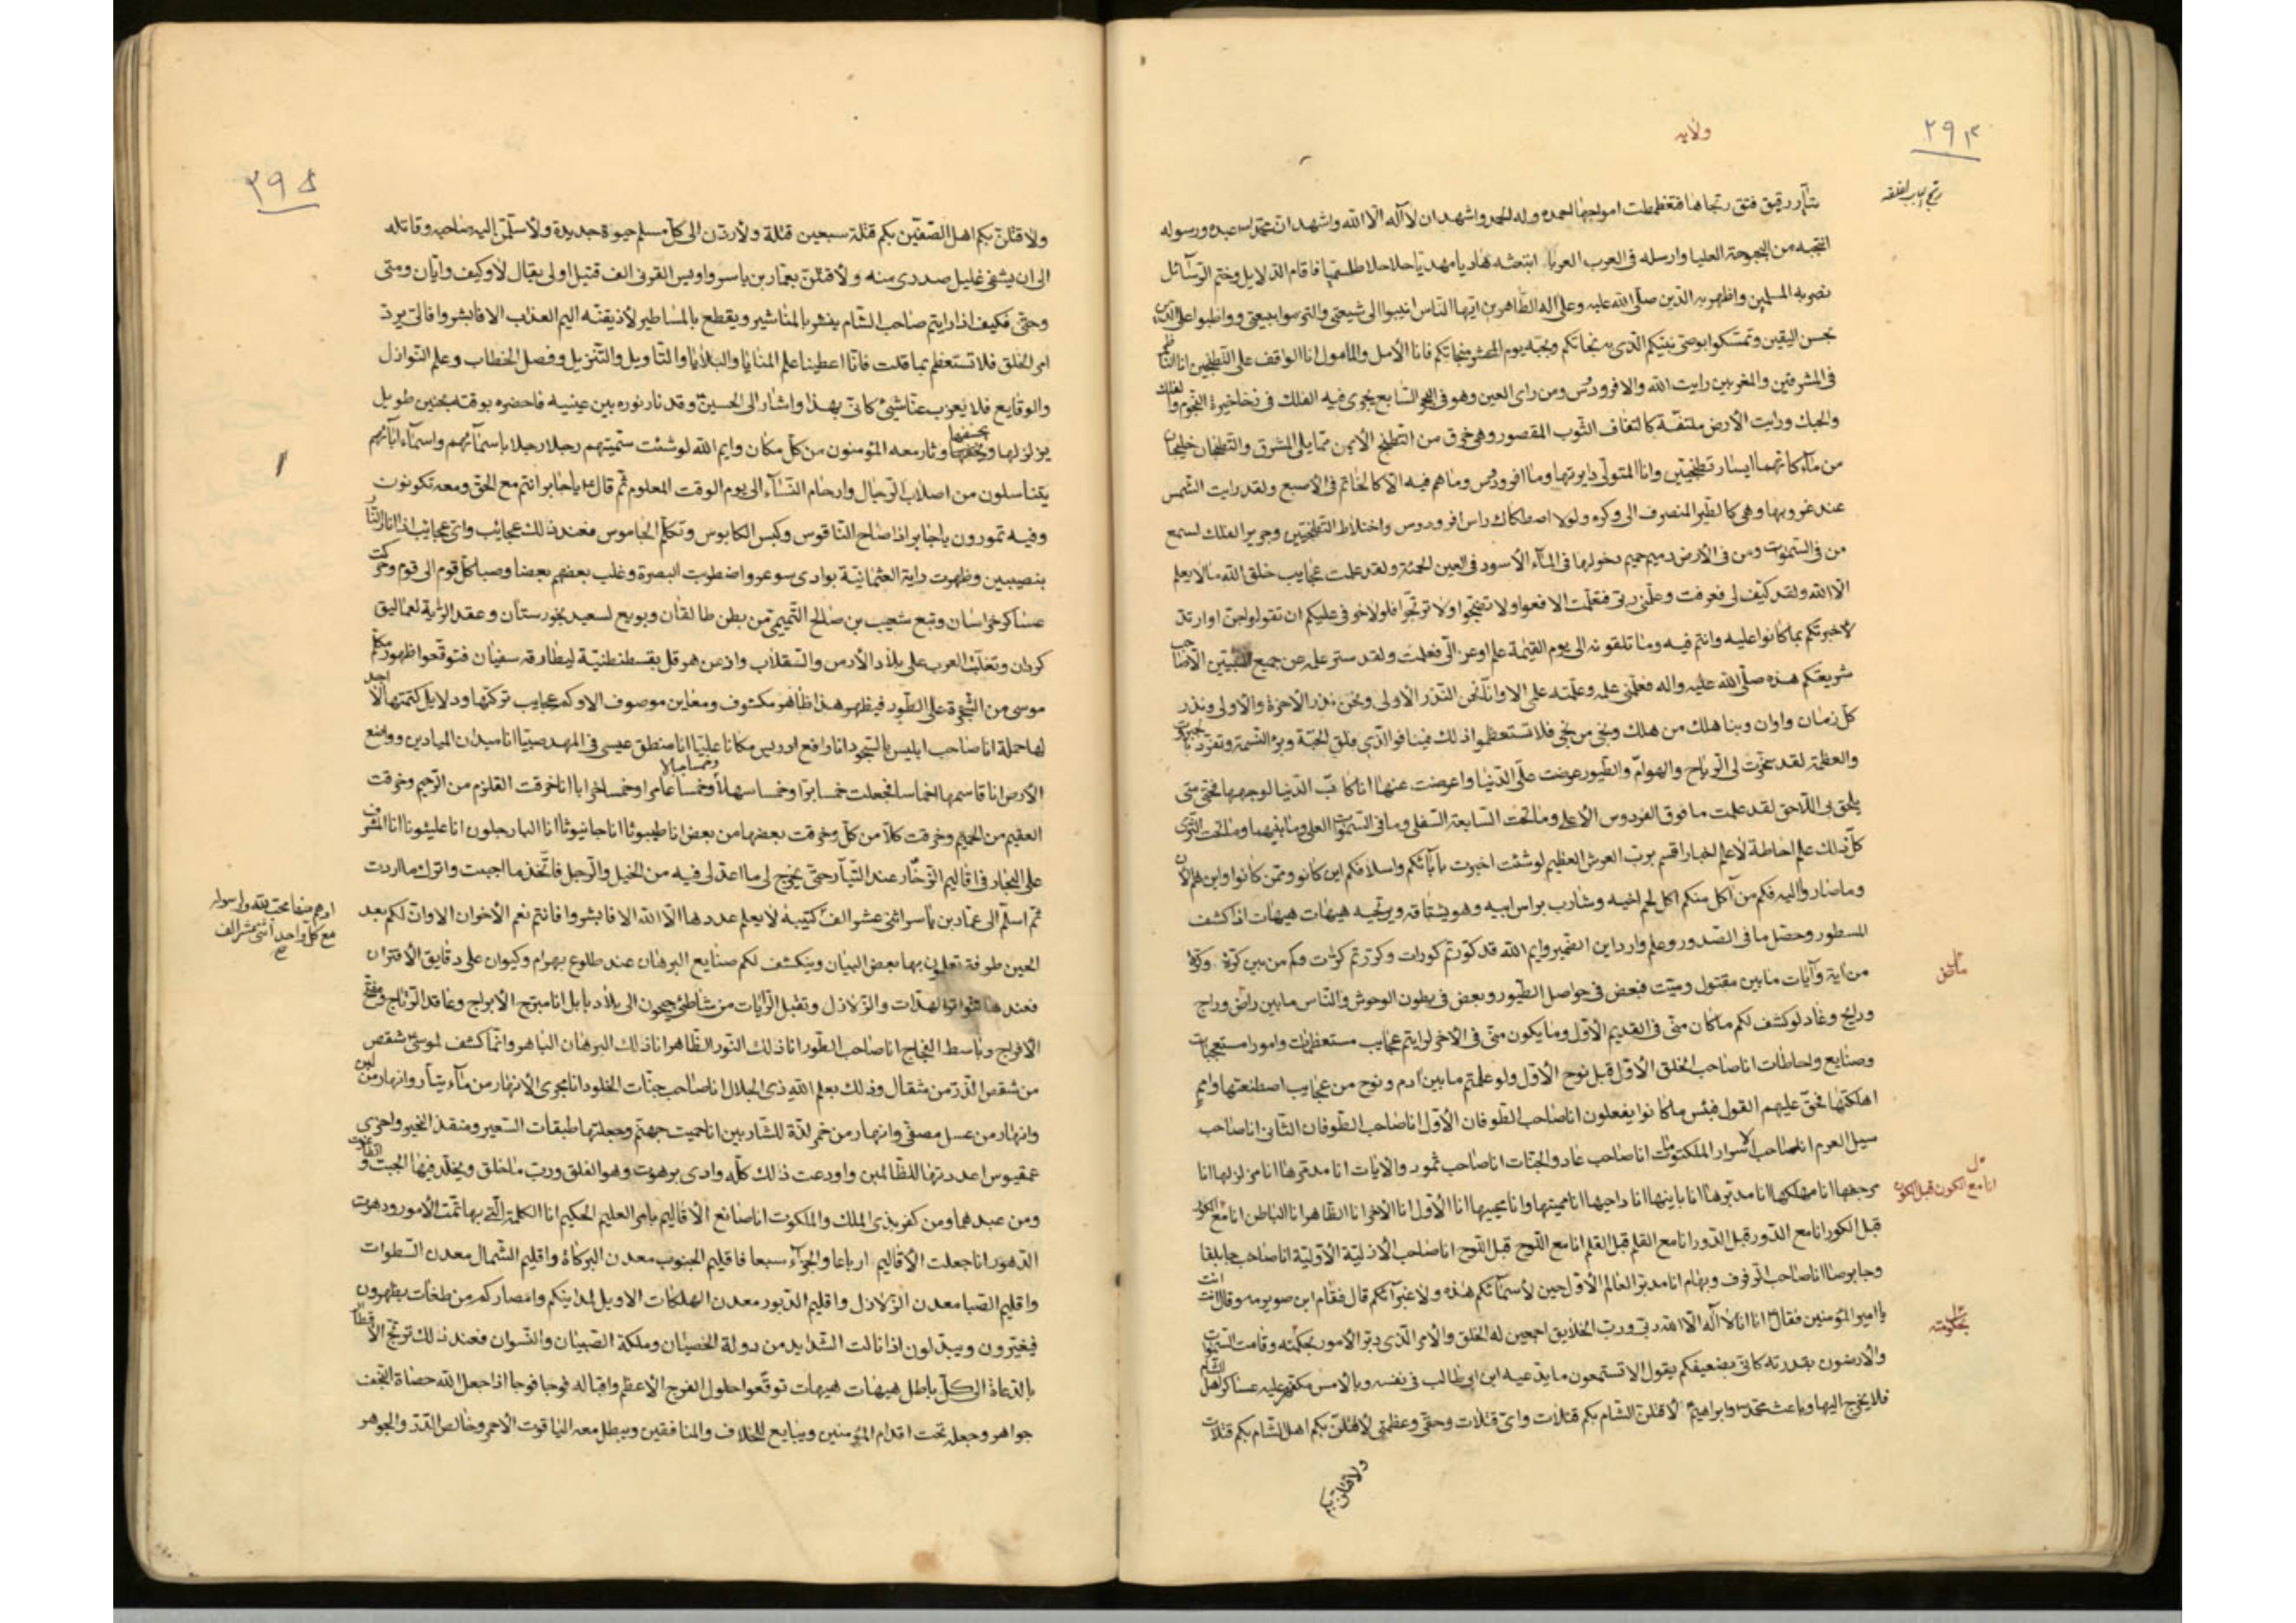 ۲۹۴
ولايه
بتيار رقيق فتق رتجاها فتغطمطت امواجها احمده وله الحمد واشهد ان لا اله الا الله واشهد ان محمدا عبده ورسوله
انتجبه من البحبوحة العليا وارسله فى العرب العربا ابتعثه هاديا مهديا حلاحلا طلسميا فاقام الدلايل وختم الرسائل
نصر به المسلمين واظهر به الدين صلى الله عليه وعلى اله الطاهرين ايها الناس انيبوا الى شيعتى والتزموا بيعتى وواظبوا على الدين
بحسن اليقين وتمسكوا بوصى نبيكم الذى به نجاتكم وبحبه يوم الحشر منجاتكم فانا الأمل والمأمول انا الواقف على التطنجين انا الناظر
فى المشرقين والمغربين رايت الله والافرودس ومن راى العين وهو فى البحر السابع يجرى فيه الفلك فى ذخاخيره النجوم والفلك
والحبك ورايت الأرض ملتفة كالتفاف الثوب المقصور وهى خزق من التطنج الأيمن مما يلى المشرق والتطنجان خليجان
من ماء كانهما ايسار تطنجين وانا المتولى دايرتها وما افرودس وما هم فيه الا كالخاتم فى الأصبع ولقد رايت الشمس
عند غروبها وهى كالطير المنصرف الى وكره ولولا اصطكاك راس افرودوس واختلاط التطنجين وجرير الفلك لسمع
من فى السموات ومن فى الأرض رميم حميم دخولها فى الماء الأسود فى العين الحمئة ولقد علمت عجايب خلق الله ما لا يعلم
الا الله ولقد كيف لى فعرفت وعلمنى ربى فتعلمت الا فعوا ولا تضجوا ولا ترتجوا فلولا خوفى عليكم ان تقولوا جن او ارتد
لاخبرتكم بما كانوا عليه وانتم فيه وما تلقونه الى يوم القيمة علم اوعز الى فعلمت ولقد ستر علمه عن جميع النبيين الا صاحب
شريعتكم هذه صلى الله عليه واله فعلمنى علمه وعلمته علمى الا وانا نحن النذر الأولى ونحن نذر الأخرة والأولى ونذر
كل زمان واوان وبنا هلك من هلك ونجى من نجى فلا تستعظموا ذلك فينا فوالذى فلق الحبة وبرء النسمة وتفرد بالجبروت
والعظمة لقد سخرت لى الرياح والهوام والطيور وعرضت على الدنيا واعرضت عنها انا كاب الدنيا لوجهها فحتى متى
يلحق بى اللاحق لقد علمت ما فوق الفردوس الأعلى وما تحت السابعة السفلى وما فى السموات العلى وما بينهما وما تحت الثرى
كل ذلك علم احاطة لا علم اخبار اقسم برب العرش العظيم لو شئت اخبرت بابائكم واسلافكم اين كانو وممن كانوا واين هم الآن
وما صاروا اليه فكم من اكل منكم اكل لحم اخيه وشارب براس ابيه وهو يشتاقه ويرتجيه هيهات هيهات اذا كشف
المسطور وحصل ما فى الصدور وعلم وارد اين الضمير وايم الله قد كورتم كورات وكررتم كرات وكم من بين كرة وكرة
من اية وآيات ما بين مقتول وميت فبعض فى حواصل الطيور وبعض فى بطون الوحوش والناس ما بين راض وراج
ورايح وغاد لو كشف لكم ما كان منى فى القديم الأول وما يكون منى فى الأخر لرايتم عجايب مستعظمات وامورا مستعجبات
وصنايع واحاطات انا صاحب الخلق الأول قبل نوح الأول ولو علمتم ما بين ادم ونوح من عجايب اصطنعتها وامم
اهلكتها فحق عليهم القول فبئس ما كانوا يفعلون انا صاحب الطوفان الأول انا صاحب الطوفان الثانى انا صاحب
سيل العرم انا صاحب الأسرار المكنونات انا صاحب عاد والجنات انا صاحب ثمود والايات انا مدمرها انا مزلزلها انا
مرجعها انا مهلكها انا مدبرها انا بانيها انا داحيها انا مميتها وانا محييها انا الأول انا الأخر انا الظاهر انا الباطن انا مع الكور
قبل الكور انا مع الدور قبل الدور انا مع القلم قبل القلم انا مع اللوح قبل اللوح انا صاحب الأزلية الأولية انا صاحب جابلقا
وجابرصا انا صاحب الرفرف وبهرام انا مدبر العالم الأول حين لا سمائكم هذه ولا غبرآئكم قال فقام ابن صويرمه وقال انت انت
يا امير المؤمنين فقال انا انا لا اله الا الله ربى ورب الخلايق اجمعين له الخلق والامر الذى دبر الأمور بحكمته وقامت السموات
والارضون بقدرته كانى بضعيفكم يقول الا تستمعون ما يدعيه ابن ابى طالب فى نفسه وبالامس مكفهر عليه عساكر اهل الشام
فلا يخرج اليها وباعث محمد وابراهيم لأقتلن الشام بكم قتلات واى قتلات وحقى وعظمتى لأقتلن بكم اهل الشام بكم قتلات
ولاقتلن بكم
انا مع الكون قبل الكون
بحكمته
۲۹۵
ولاقتلن بكم اهل الصفين بكم قتلة سبعين قتلة ولأردن الى كل مسلم حيوة جديدة ولأسلمن اليه صاحبه وقاتله
الى ان يشفى غليل صدرى منه ولأقتلن بعمار بن ياسر واويس القرنى الف قتيل اولى يقال لا وكيف وايان ومتى
وحتى فكيف اذا رايتم صاحب الشام ينشر بالمناشير ويقطع بالمساطير لأذيقنه اليم العذاب الا فابشروا فالى يرد
امر الخلق فلا تستعظم بما قلت فانا اعطينا علم المنايا والبلايا والتاويل والتنزيل وفصل الخطاب وعلم النوازل
والوقايع فلا يعزب عنا شئ كانى بهذا واشار الى الحسين وقد نار نوره بين عينيه فاحضره بوقته بحنين طويل
يزلزلها ويخسفها وثار معه المؤمنون من كل مكان وايم الله لو شئت سميتهم رجلا رجلا باسمائهم واسماء ابائهم
يتناسلون من اصلاب الرجال وارحام النساء الى يوم الوقت المعلوم ثم قال يا جابر انتم مع الحق ومعه تكونون
وفيه تمورون يا جابر اذا صاح الناقوس وكبس الكابوس وتكلم الجاموس فعند ذلك عجايب واى عجايب اذا انار النار
بنصيبين وظهرت راية العثمانية بوادى سوء واضطربت البصرة وغلب بعضهم بعضا وصبا كل قوم الى قوم وحركت
عساكر خراسان وتبع شعيب بن صالح التميمى من بطن طالقان وبويع لسعيد بخورستان وعقد الراية لعماليق
كردان وتغلبت العرب على بلاد الأرمن والسقلاب واذعن هرقل بقسطنطنية لبطارقه سفيان فتوقعوا ظهور مكلم
موسى من الشجرة على الطور فيظهر هذا ظاهر مكشوف ومعاين موصوف الا وكم عجايب تركتها ودلايل كتمتها لا اجد
لها حملة انا صاحب ابليس بالسجود انا رافع ادريس مكانا عليا انا منطق عيسى فى المهد صبيا انا ميدان الميادين وواضع
الأرض انا قاسمها اخماسا فجعلت خمسا برا وخمسا سهلا وخمسا جبالا وخمسا عامرا وخمسا خرابا انا خرقت القلزم من الرجيم وخرقت
العقيم من الحميم وخرقت كلا من كل وخرقت بعضها من بعض انا طيبوثا انا جانبوثا انا البارحلون انا عليثوثا انا المشرف
على البحار فى اقاليم الزخار عند التيار حتى يخرج لى ما اعد لى فيه من الخيل والرجل فاتخذ ما احببت واترك ما اردت
ثم اسلم الى عمار بن ياسر اثنى عشر الف كتيبة لا يعلم عددها الا الله الا فابشروا فانتم نعم الأخوان الا وان لكم بعد
الحين طرفة تعلمون بها بعض البيان وينكشف لكم صنايع البرهان عند طلوع بهرام وكيوان على دقايق الأقتران
فعندها تتواتر الهدات والزلازل وتقبل الرايات من شاطئ جيحون الى بلاد بابل انا مبرج الأبراج وعاقد الرتاج ومفتح
الأفراج وباسط الفجاج انا صاحب الطور انا ذلك النور الظاهر انا ذلك البرهان الباهر وانما كشف لموسى شقص
من شقص الذر من مثقال وذلك بعلم الله ذى الجلال انا صاحب جنات الخلود انا مجرى الأنهار من ماء تيار وانهار من لبن
وانهار من عسل مصفى وانهار من خمر لذة للشاربين انا حميت جهنم وجعلتها طبقات السعير ومنقذ الخير واخرى
عمقيوس اعددتها للظالمين واودعت ذلك كله وادى برهوت وهو الفلق ورب ما خلق ويخلد فيها الجبت والطاغوت
ومن عبدهما ومن كفر بذى الملك والملكوت انا صانع الأقاليم بامر العليم الحكيم انا الكلمة التى بها تمت الأمور ودهرت
الدهور انا جعلت الأقاليم ارباعا والجزآء سبعا فاقليم الجنوب معدن البركاة واقليم الشمال معدن السطوات
واقليم الصبا معدن الزلازل واقليم الدبور معدن الهلكات الا ويل لمداينكم وامصاركم من طغات يظهرون
فيغيرون ويبدلون اذا نالت الشدايد من دولة الخصيان وملكة الصبيان والنسوان فعند ذلك ترتج الأقطار
بالدعاة الى كل باطل هيهات هيهات توقعوا حلول الفرج الأعظم واقباله فوجا فوجا اذا جعل الله حصاة النجف
جواهر وجعله تحت اقدام المؤمنين ويبايع للخلاف والمنافقين ويبطل معه الياقوت الاحمر وخالص الدر والجوهر
مع كل واحد اثنى عشر الف